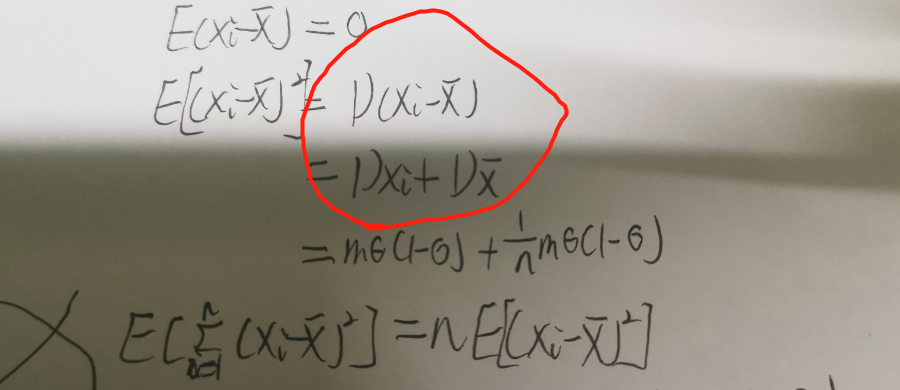 E(xi-x̄) = 0
E[(xi-x̄)²] = D(xi-x̄)
= Dxi + Dx̄
= mθ(1-θ) + 1/n mθ(1-θ)
E[∑ⁿᵢ₌₁(xi-x̄)²] = nE[(xi-x̄)²]